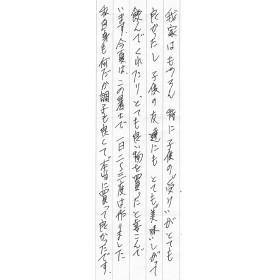 我家はもちろん 特に子供の"受け"がとても
良かったし 子供の友達にも とても"美味しい"がって
飲んでくれたり、とても良い物を買ったと喜んで
います。今夏は、この暑さで 一日二〜三度は作りました
私自身も 何だか調子も良くて"本当に買って良かったです。